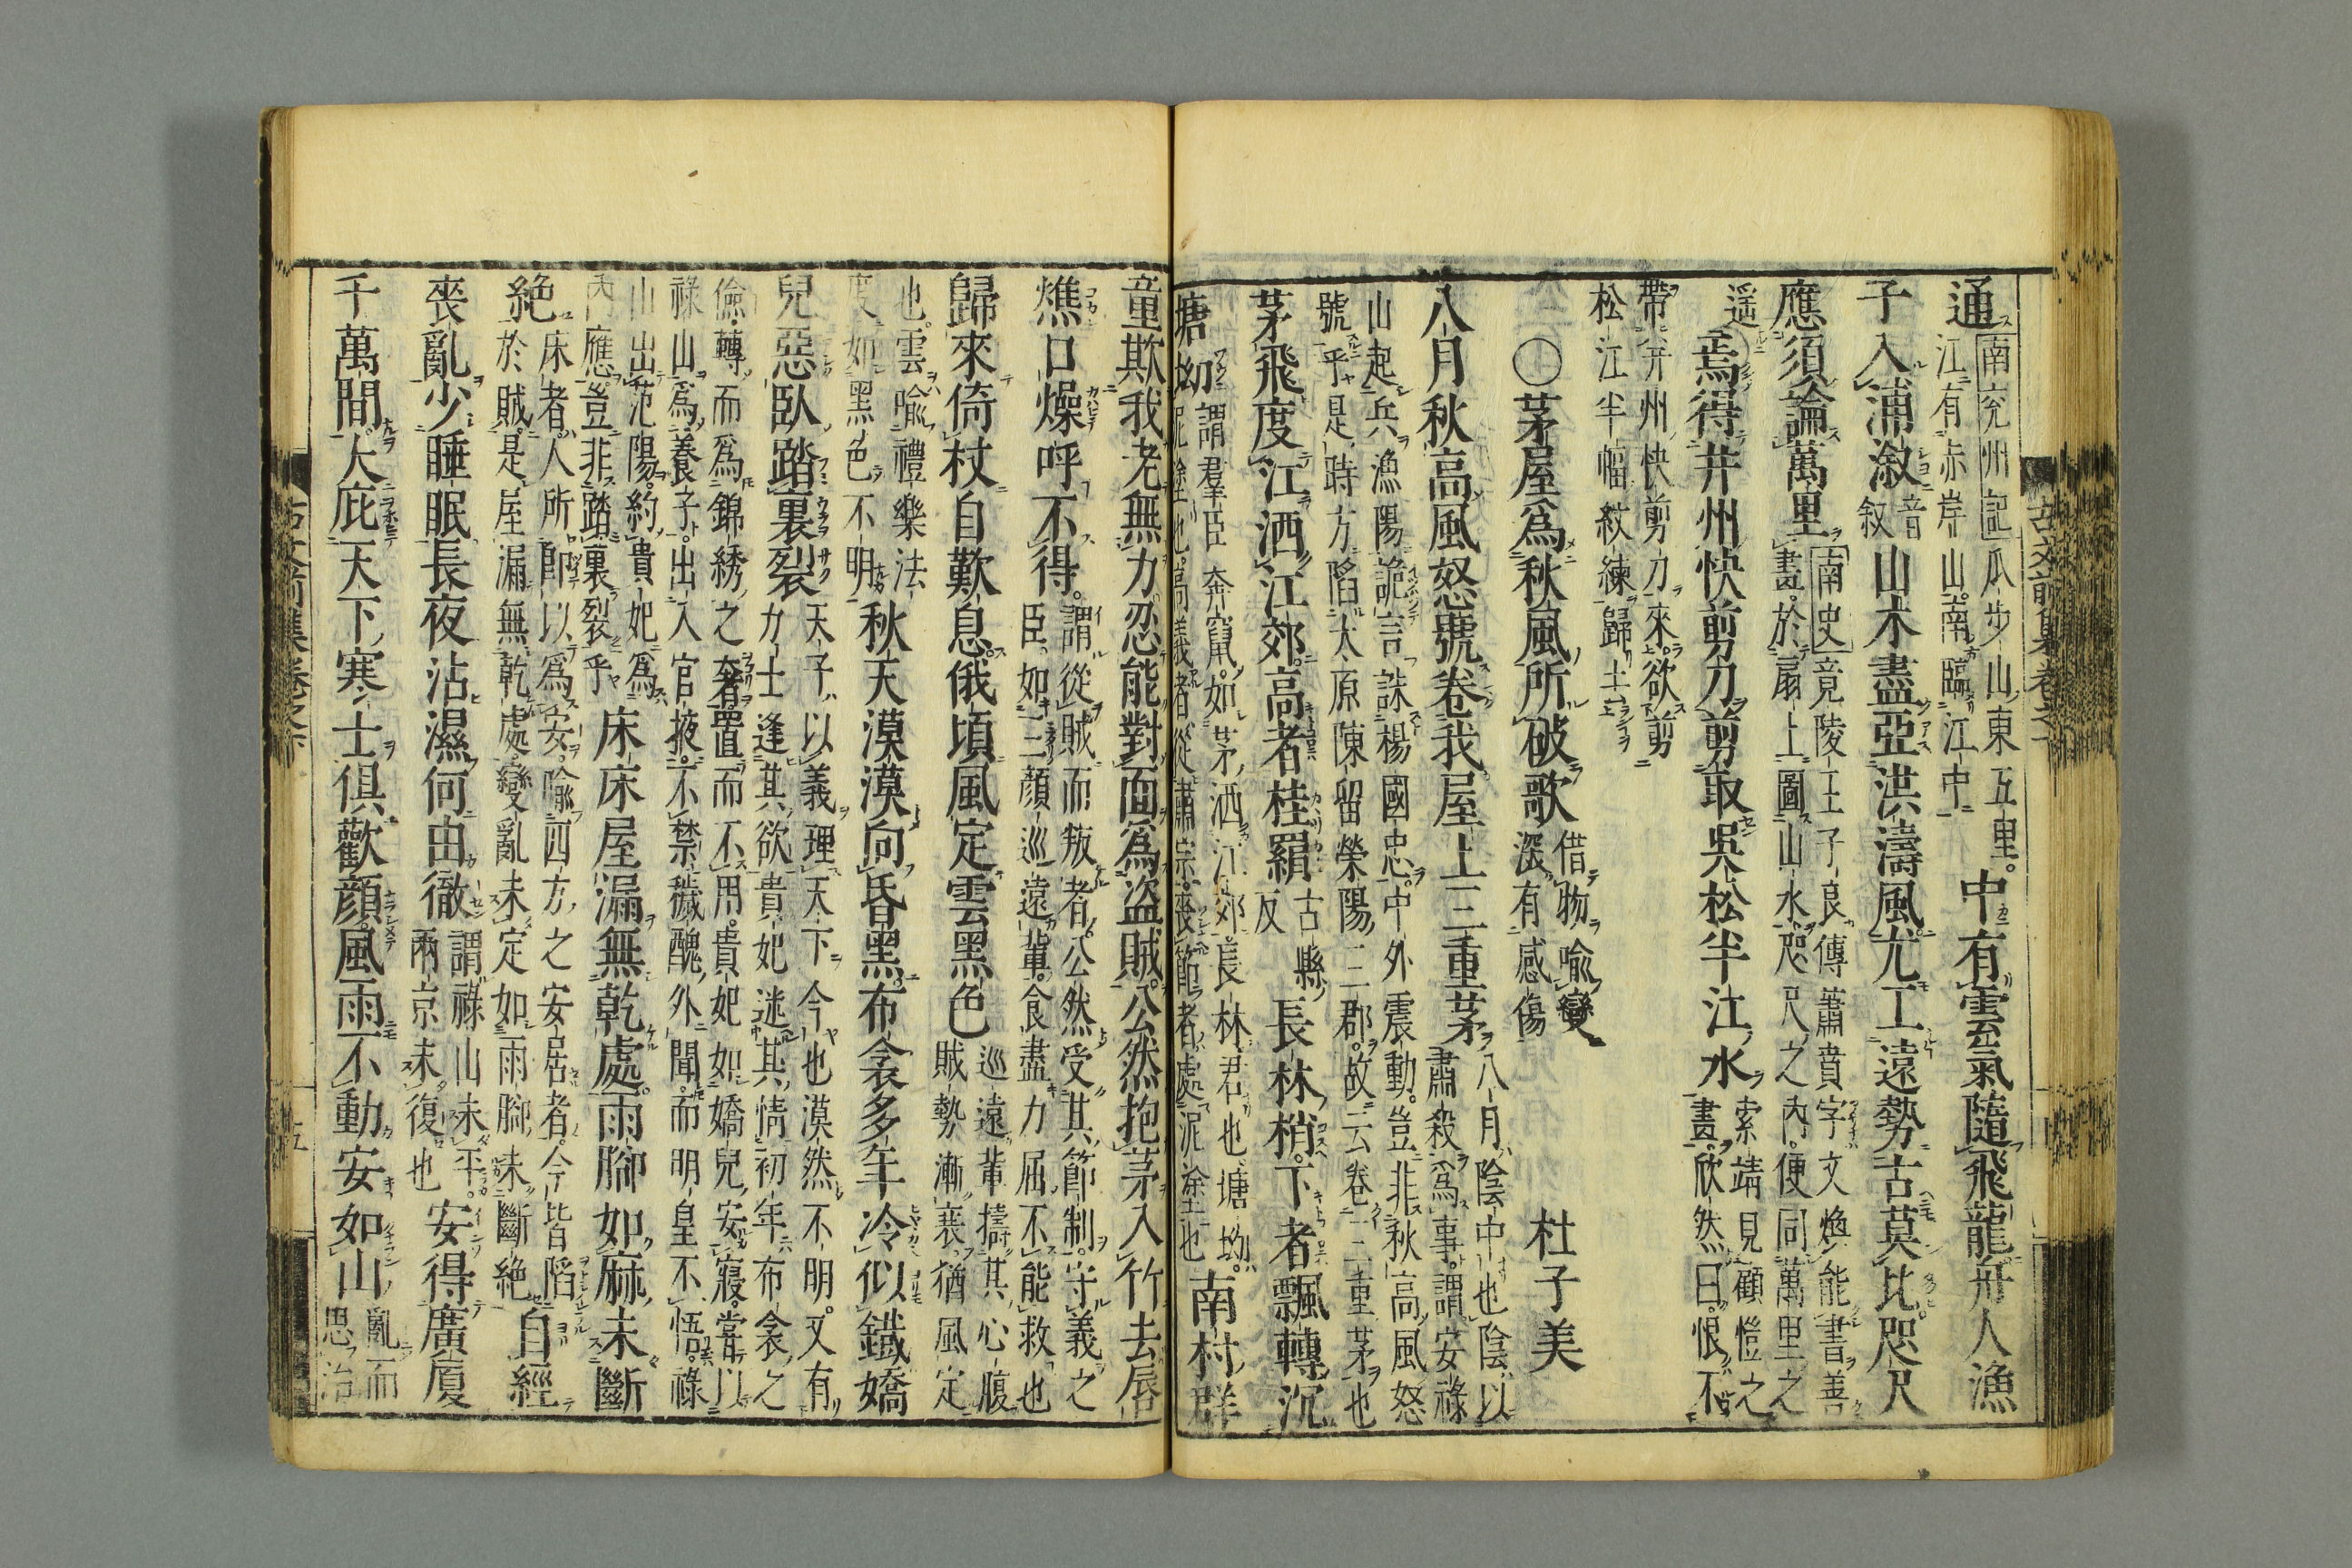 通 南兖州記瓜步山東五里。江有赤岸山。南臨江中 中有雲氣隨飛龍舟人漁
子入浦溆 音叙 山木盡亞洪濤風尤工遠勢古莫比咫尺
應須論萬里 南史竟陵王子良傳蕭賁字文煥能書善畫於扇上圖山水咫尺之內便同萬里之
遥 焉得幷州快剪刀剪取吳松半江水 索靖見顧愷之畫欣然曰恨不
帶幷州快剪刀來欲剪松江半幅紋練歸
○茅屋爲秋風所破歌 借物喻變深有感傷 杜子美
八月秋高風怒號卷我屋上三重茅 八月陰中也陰以肅殺爲事謂安祿
山起兵漁陽詭言誅楊國忠中外震動豈非秋高風怒號乎是時方陷太原陳留榮陽三郡故云卷三重茅也
茅飛度江洒江郊高者桂羂 古縣反 長林梢下者飄轉沉
塘坳 謂羣臣奔竄如茅洒江郊長林君也塘坳泥塗也高義者從肅宗喪節者處泥塗也 南村群
童欺我老無力忍能對面爲盜賊公然抱茅入竹去唇
燋口燥呼不得 謂從賊而叛者公然受其節制守義之臣如三顏巡遠輩食盡力屈不能救也
歸來倚杖自歎息俄頃風定雲黑色 巡遠輩擣其心腹賊勢漸衰猶風定
也雲喻禮樂法度如黑色不明 秋天漠漠向昏黑布衾多年冷似鐵嬌
兒惡臥踏裏裂 天子以義理天下今也漠然不明又有力士逢其欲貴妃迷其情初年布衾之
儉轉而爲錦綉之奢置而不用貴妃如嬌兒安寢嘗以祿山爲養子出入官掖不禁穢醜外聞而明皇不悟祿
山出范陽約貴妃爲內應豈非踏裏裂乎 床床屋漏無乾處雨脚如麻未斷
絕 床者人所卽以爲安喻四方之安居者今皆陷於賊是屋漏無乾處變亂未定如雨脚未斷絕 自經
喪亂少睡眠長夜沾濕何由徹 謂祿山未平兩京未復也 安得廣廈
千萬間大庇天下寒士俱歡顔風雨不動安如山 亂而思治
古文前集卷之下
五